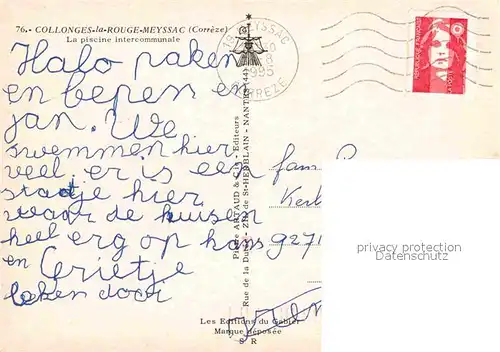 76.- COLLONGES-la-ROUGE-MEYSSAC (Corrèze)
La piscine intercommunale
MEYSSAC
1995
CORREZE
Halo paken
en bepen en
jan. We
zwemmen hier
veel. er is een
stadje hier
waar de huisen
heel erg op hans
en Grietje
leken door
fam
Kerk
9271
Pierre ARTAUD & Cie - Editeurs
Rue de la Dutée - ZIL de St-HERBLAIN - NANTES (44)
Les Editions du Gabier
Marque déposée
S R
privacy protection
Datenschutz